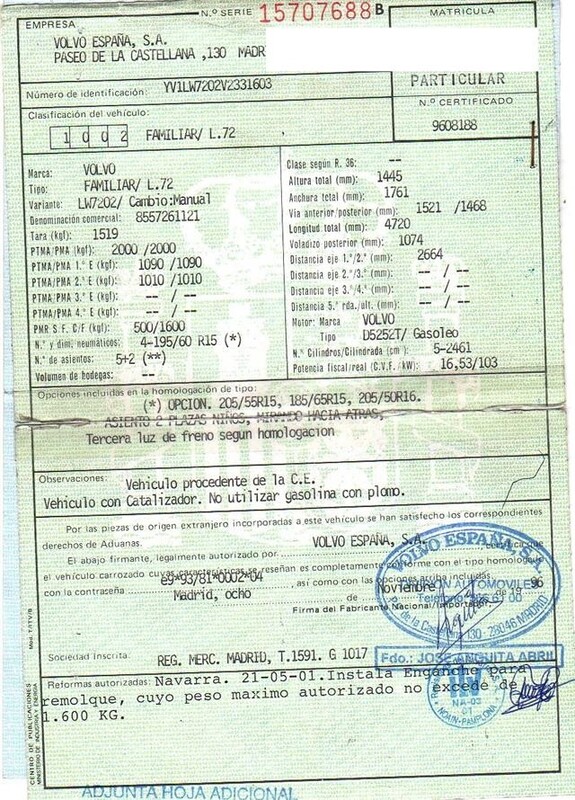 EMPRESA
N.º SERIE 15707688 B
MATRICULA
VOLVO ESPAÑA, S.A.
PASEO DE LA CASTELLANA ,130 MADR
Número de identificación: YV1LW7202V2331603
PARTICULAR
Clasificación del vehículo:
N.º CERTIFICADO
1002 FAMILIAR/ L.72
9608188
Marca: VOLVO
Tipo: FAMILIAR/ L.72
Variante: LW7202/ Cambio:Manual
Denominación comercial: 8557261121
Tara (kgf): 1519
PTMA/PMA (kgf): 2000 /2000
PTMA/PMA 1.º E (kgf): 1090 /1090
PTMA/PMA 2.º E (kgf): 1010 /1010
PTMA/PMA 3.º E (kgf): -- / --
PTMA/PMA 4.º E (kgf): -- / --
PMR S.F. C/F (kgf): 500/1600
N.º y dim. neumáticos: 4-195/60 R15 (*)
N.º de asientos: 5+2 (**)
Volumen de bodegas: --
Clase según R. 36: --
Altura total (mm): 1445
Anchura total (mm): 1761
Vía anterior/posterior (mm): 1521 /1468
Longitud total (mm): 4720
Voladizo posterior (mm): 1074
Distancia eje 1.º/2.º (mm): 2664
Distancia eje 2.º/3.º (mm): -- / --
Distancia eje 3.º/4.º (mm): -- / --
Distancia 5.ª rda./ult. (mm): -- / --
Motor: Marca VOLVO
Tipo D5252T/ Gasoleo
N.º Cilindros/Cilindrada (cm ): 5-2461
Potencia fiscal/real (C.V.F. / kW): 16,53/103
Opciones incluidas en la homologación de tipo:
(*) OPCION. 205/55R15, 185/65R15, 205/50R16.
ASIENTO 2 PLAZAS NIÑOS, MIRANDO HACIA ATRAS,
Tercera luz de freno segun homologacion
Observaciones: Vehiculo procedente de la C.E.
Vehiculo con Catalizador. No utilizar gasolina con plomo.
Por las piezas de origen extranjero incorporadas a este vehículo se han satisfecho los correspondientes
derechos de Aduanas.
VOLVO ESPAÑA, S.A.
El abajo firmante, legalmente autorizado por
el vehículo carrozado cuyas características se reseñan es completamente conforme con el tipo homologado
con la contraseña e9*93/81*0002*04, así como con las opciones arriba incluidas
Madrid, ocho Noviembre de 19 96
Firma del Fabricante Nacional/Importador
VOLVO ESPAÑA, S.A.
AUTOMOVILES
28046 MADRID
Fdo.: JOSE ANGUITA ABRIL
Sociedad Inscrita: REG. MERC. MADRID, T.1591. G 1017
Reformas autorizadas: Navarra. 21-05-01.Instala Enganche para
remolque, cuyo peso maximo autorizado no excede de
1.600 KG.
NA-03
NOAIN-PAMPLONA
CENTRO DE PUBLICACIONES
MINISTERIO DE INDUSTRIA Y ENERGIA
ADJUNTA HOJA ADICIONAL